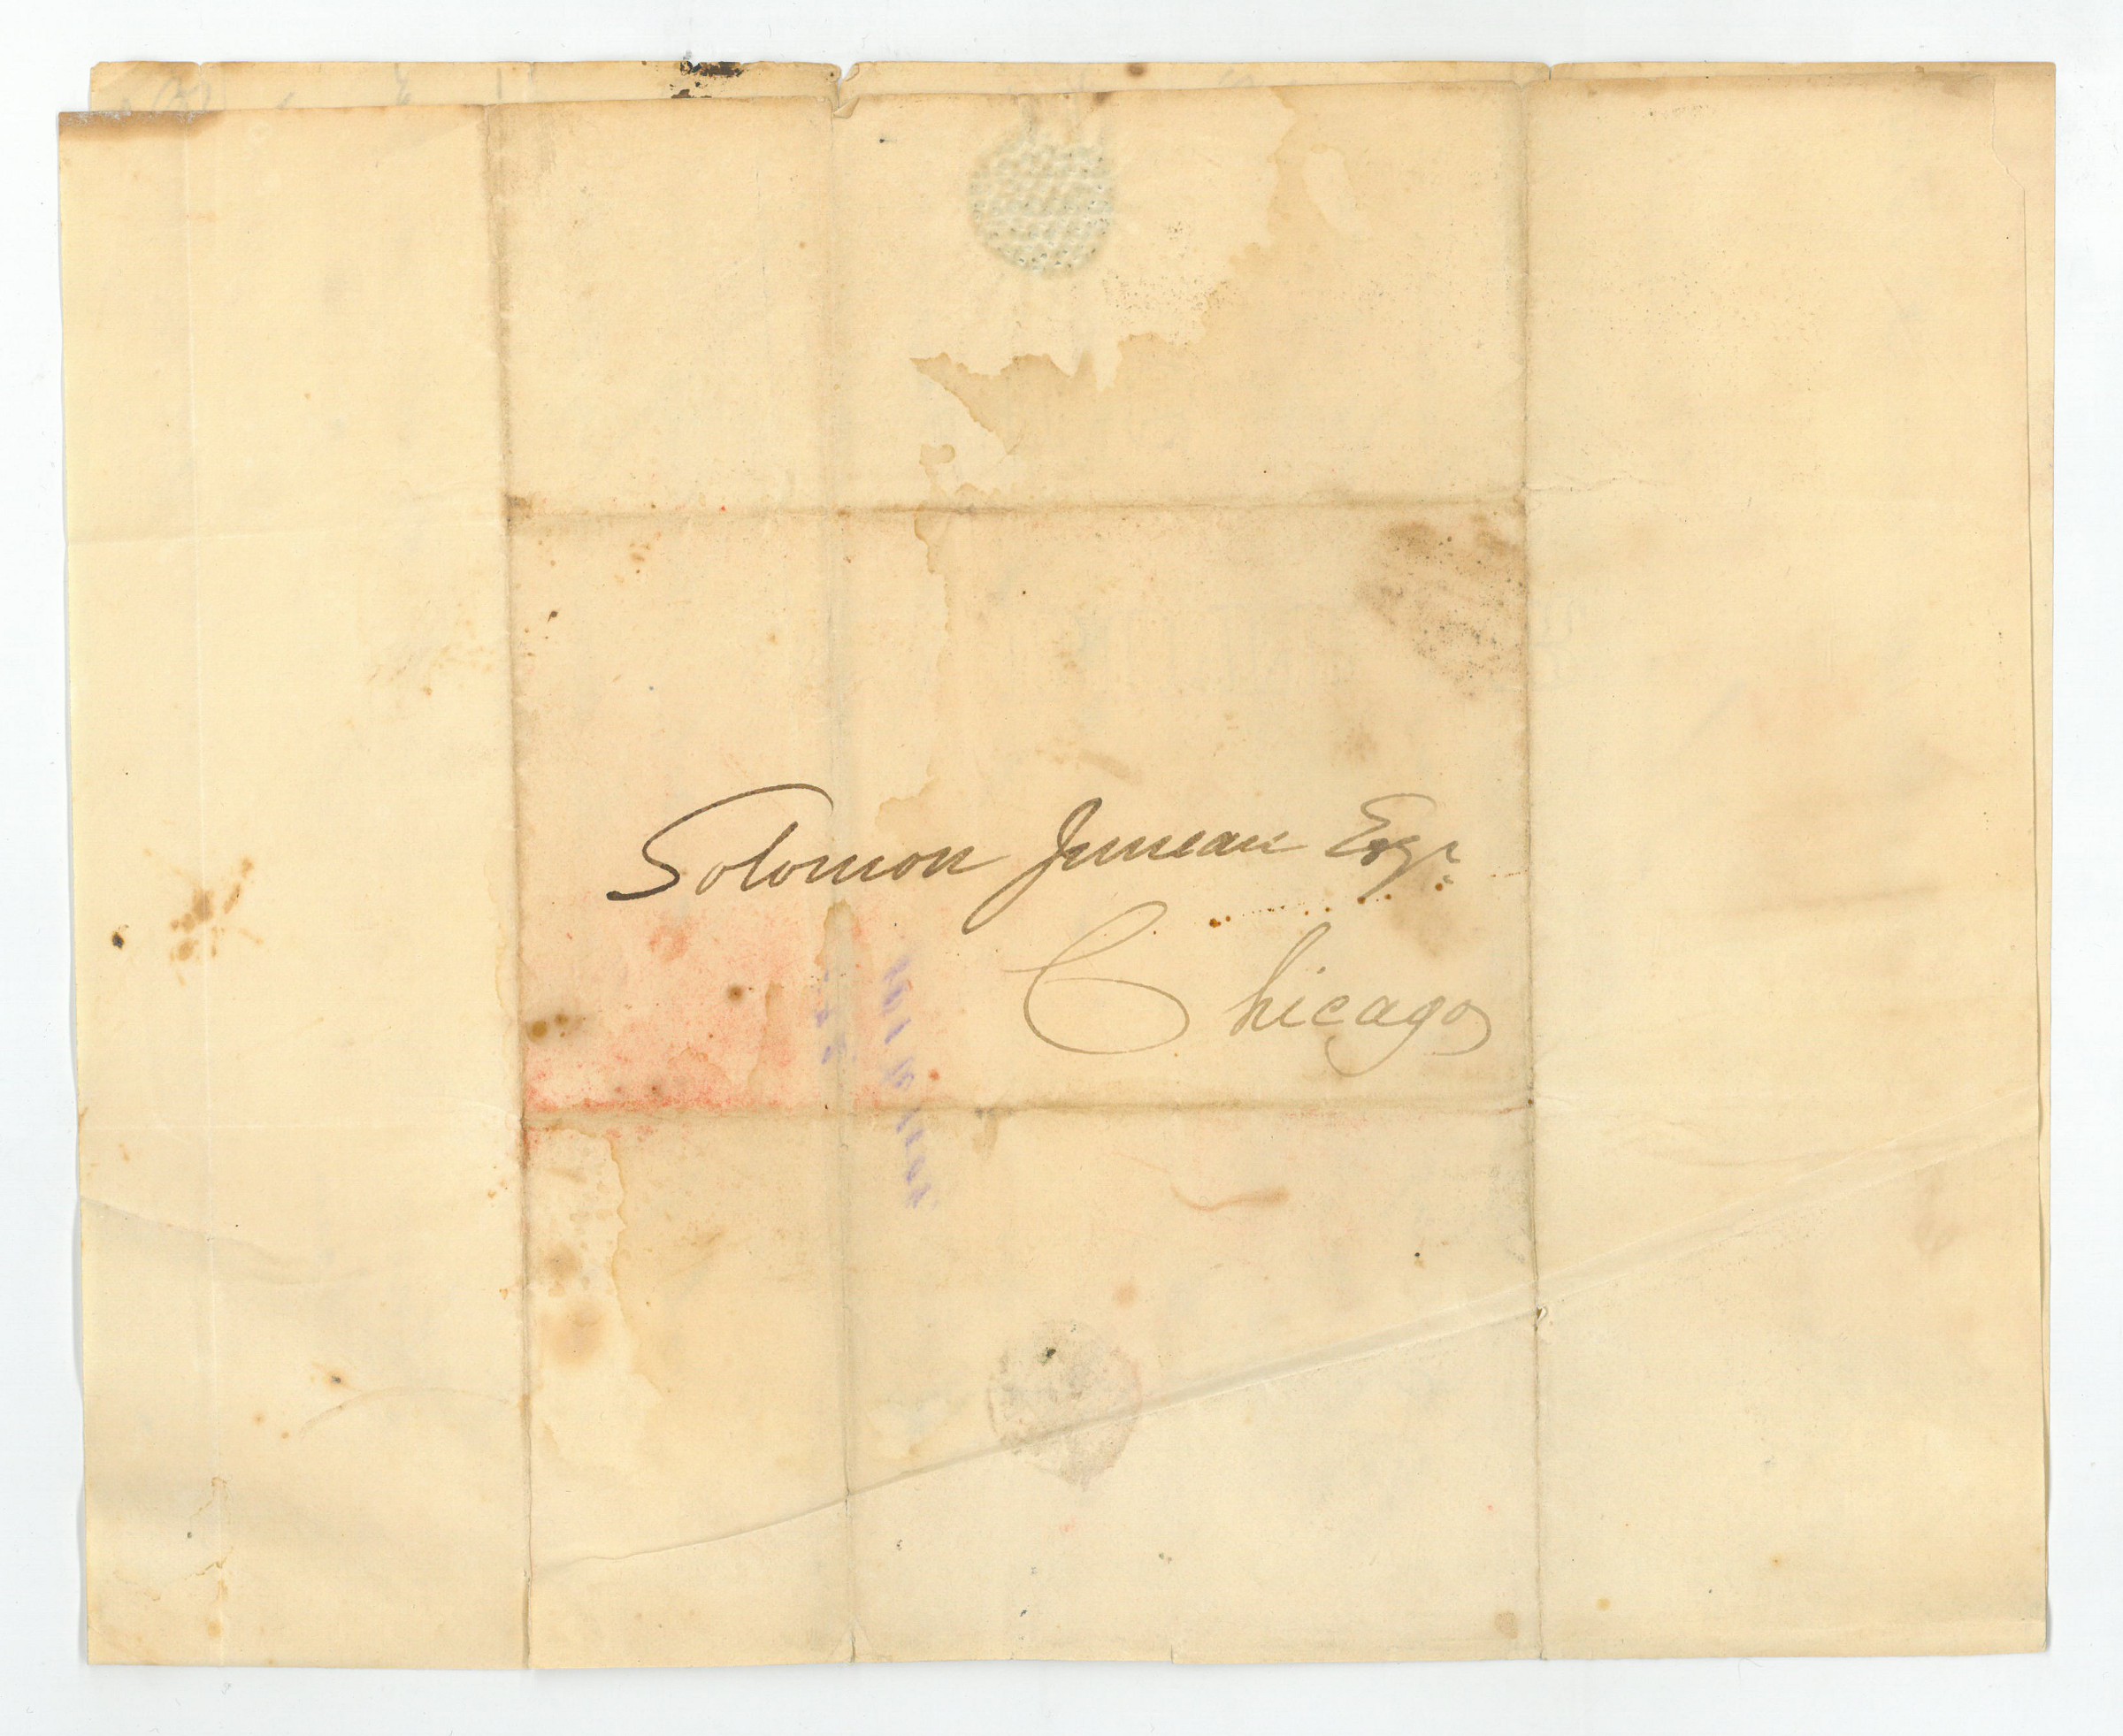 Solomon Juneau Esqr.
Chicago